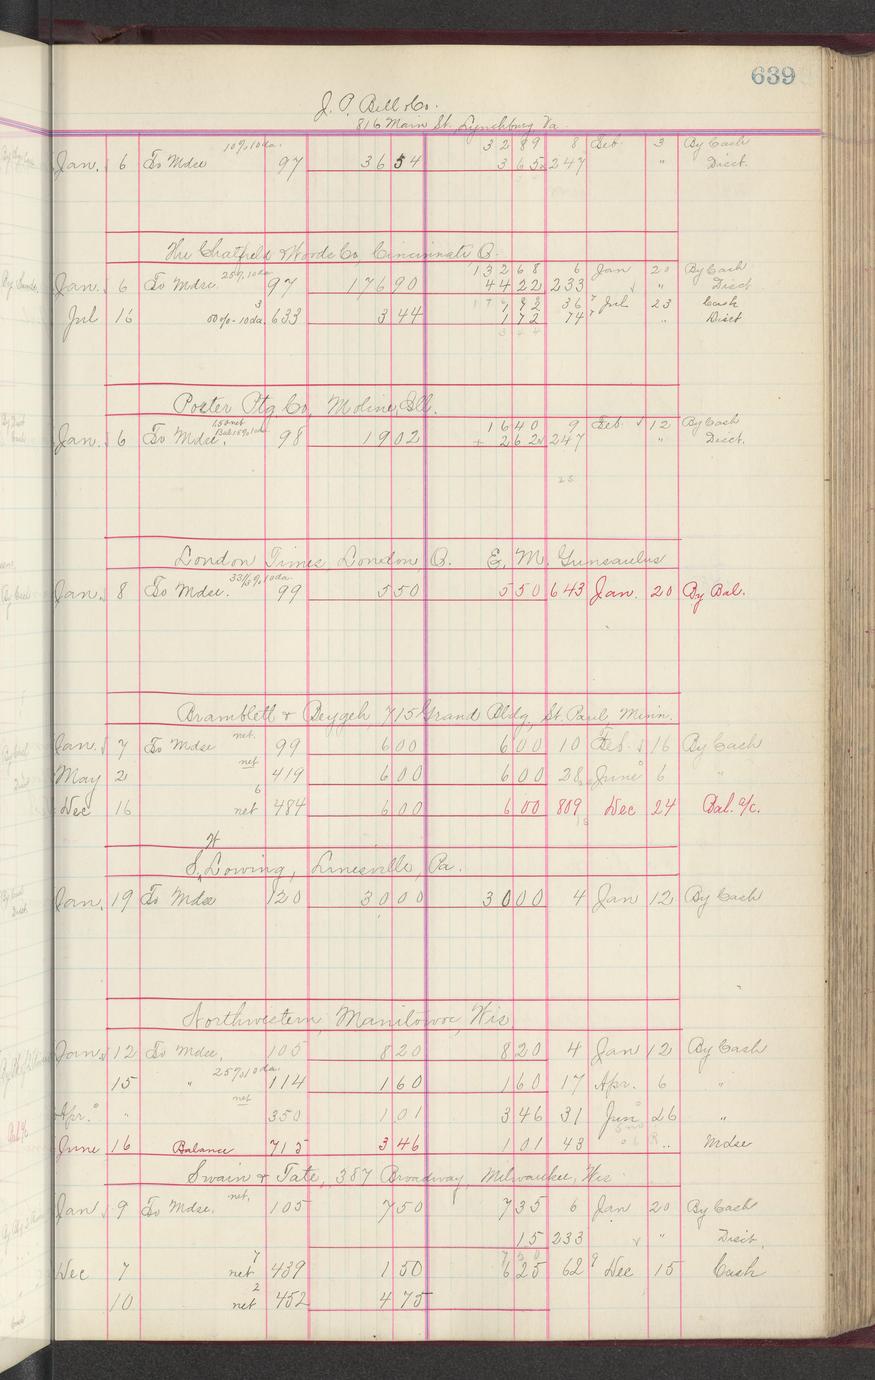 639
J. P. Bell & Co.
816 Main St. Lynchburg, Va.
10% 10 da. 32 89 8 Feb. 3 By Cash
Jan. 6 To Mdse 97 36 54 3 65 247 " Disct.
The Chatfield & Woods Co, Cincinnati O.
25% 10 da. 132 68 6 Jan 20 By Cash
Jan. 6 To Mdse. 97 176 90 44 22 233 " Disct
3 1 72 36 Jul 23 Cash
Jul 16 50% - 10 da. 633 3 44 1 72 74 " Disct
3 44
Poster Ptg. Co, Moline, Ill.
16 40 9 Feb. 12 By Cash
Jan. 6 To Mdse. 98 19 02 2 62 247 " Disct.
London Times London O. E. M. Gunsaulus
33 1/3 % 10 da.
Jan. 8 To Mdse. 99 5 50 5 50 643 Jan. 20 By Bal.
Bramblett & Beygeh, 715 Grand Bldg, St. Paul, Minn.
net.
Jan. 7 To Mdse 99 6 00 6 00 10 Feb. 16 By Cash
net
May 2 419 6 00 6 00 28 June 6 "
6
Dec 16 net 484 6 00 6 00 809 Dec 24 Bal. a/c.
H
S. Lowing, Linesville, Pa.
Jan. 19 To Mdse 120 30 00 30 00 4 Jan 12 By Cash
Northwestern, Manitowoc, Wis
Jan. 12 To Mdse, 105 8 20 8 20 4 Jan 12 By Cash
25% 10 da.
15 " 114 1 60 1 60 17 Apr. 6 "
net
Apr. " 350 1 01 3 46 31 Jun 26 "
June 16 Balance 713 3 46 1 01 43 " Mdse
Swain & Tate, 387 Broadway, Milwaukee, Wis
net.
Jan 9 To Mdse. 105 7 50 7 35 6 Jan 20 By Cash
15 233 " Disct.
7 7 50
Dec 7 net 439 1 50 6 25 62 Dec 15 Cash
2
10 net 452 4 75